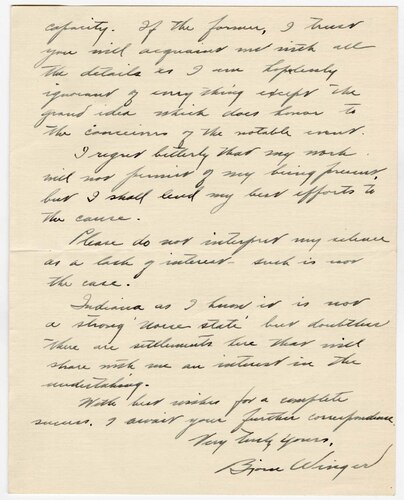 capacity. If the former, I trust
you will acquaint me with all
the details as I am hopelessly
ignorant of everything except the
grand idea which does honor to
the conceivers of the notable event.
I regret bitterly that my work
will not permit of my being present,
but I shall lend my best efforts to
the cause.
Please do not interpret my silence
as a lack of interest - such is not
the case.
Indiana as I know it is not
a strong "Norse state" but doubtless
there are settlements here that will
share with me an interest in the
undertaking.
With best wishes for a complete
success. I await your further correspondence.
Very truly yours,
Bjorn Winger